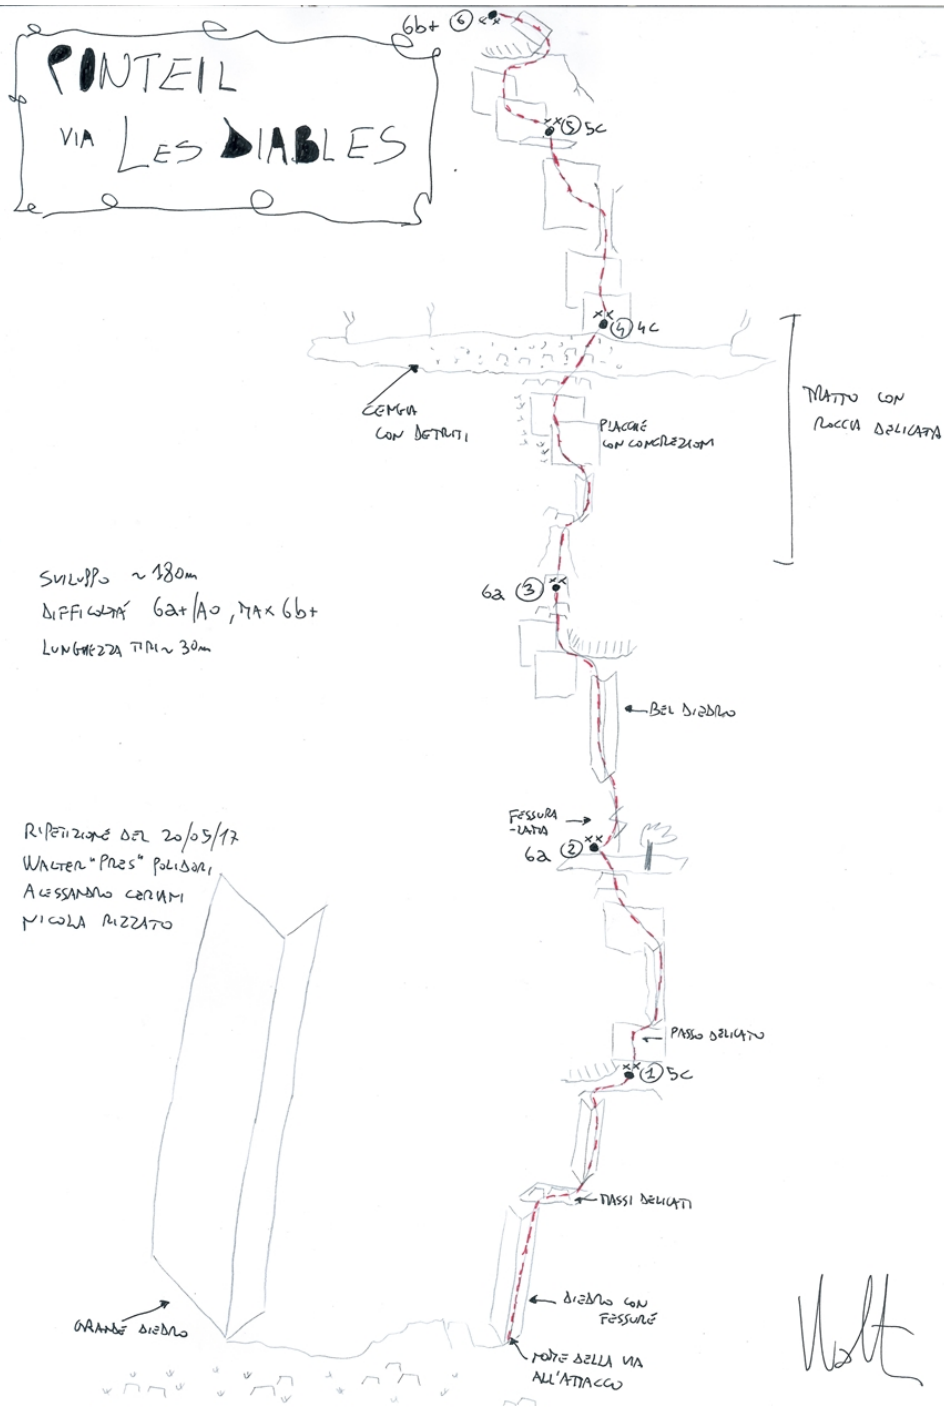 PONTEIL
VIA LES DIABLES
6b+ 6
5 5c
4 4c
CENGIA
CON DETRITI
PLACCHE
CON CONCREZIONI
TRATTO CON
ROCCIA DELICATA
SVILUPPO ~ 180m
DIFFICOLTÁ 6a+/A0, MAX 6b+
LUNGHEZZA TIRI ~ 30m
6a 3
BEL DIEDRO
FESSURA
-LAMA
6a 2
RIPETIZIONE DEL 20/05/17
WALTER "PRES" POLIDORI,
ALESSANDRO CERIANI
NICOLA RIZZATO
PASSO DELICATO
1 5c
MASSI DELICATI
DIEDRO CON
FESSURE
GRANDE DIEDRO
NOME DELLA VIA
ALL'ATTACCO
Walt